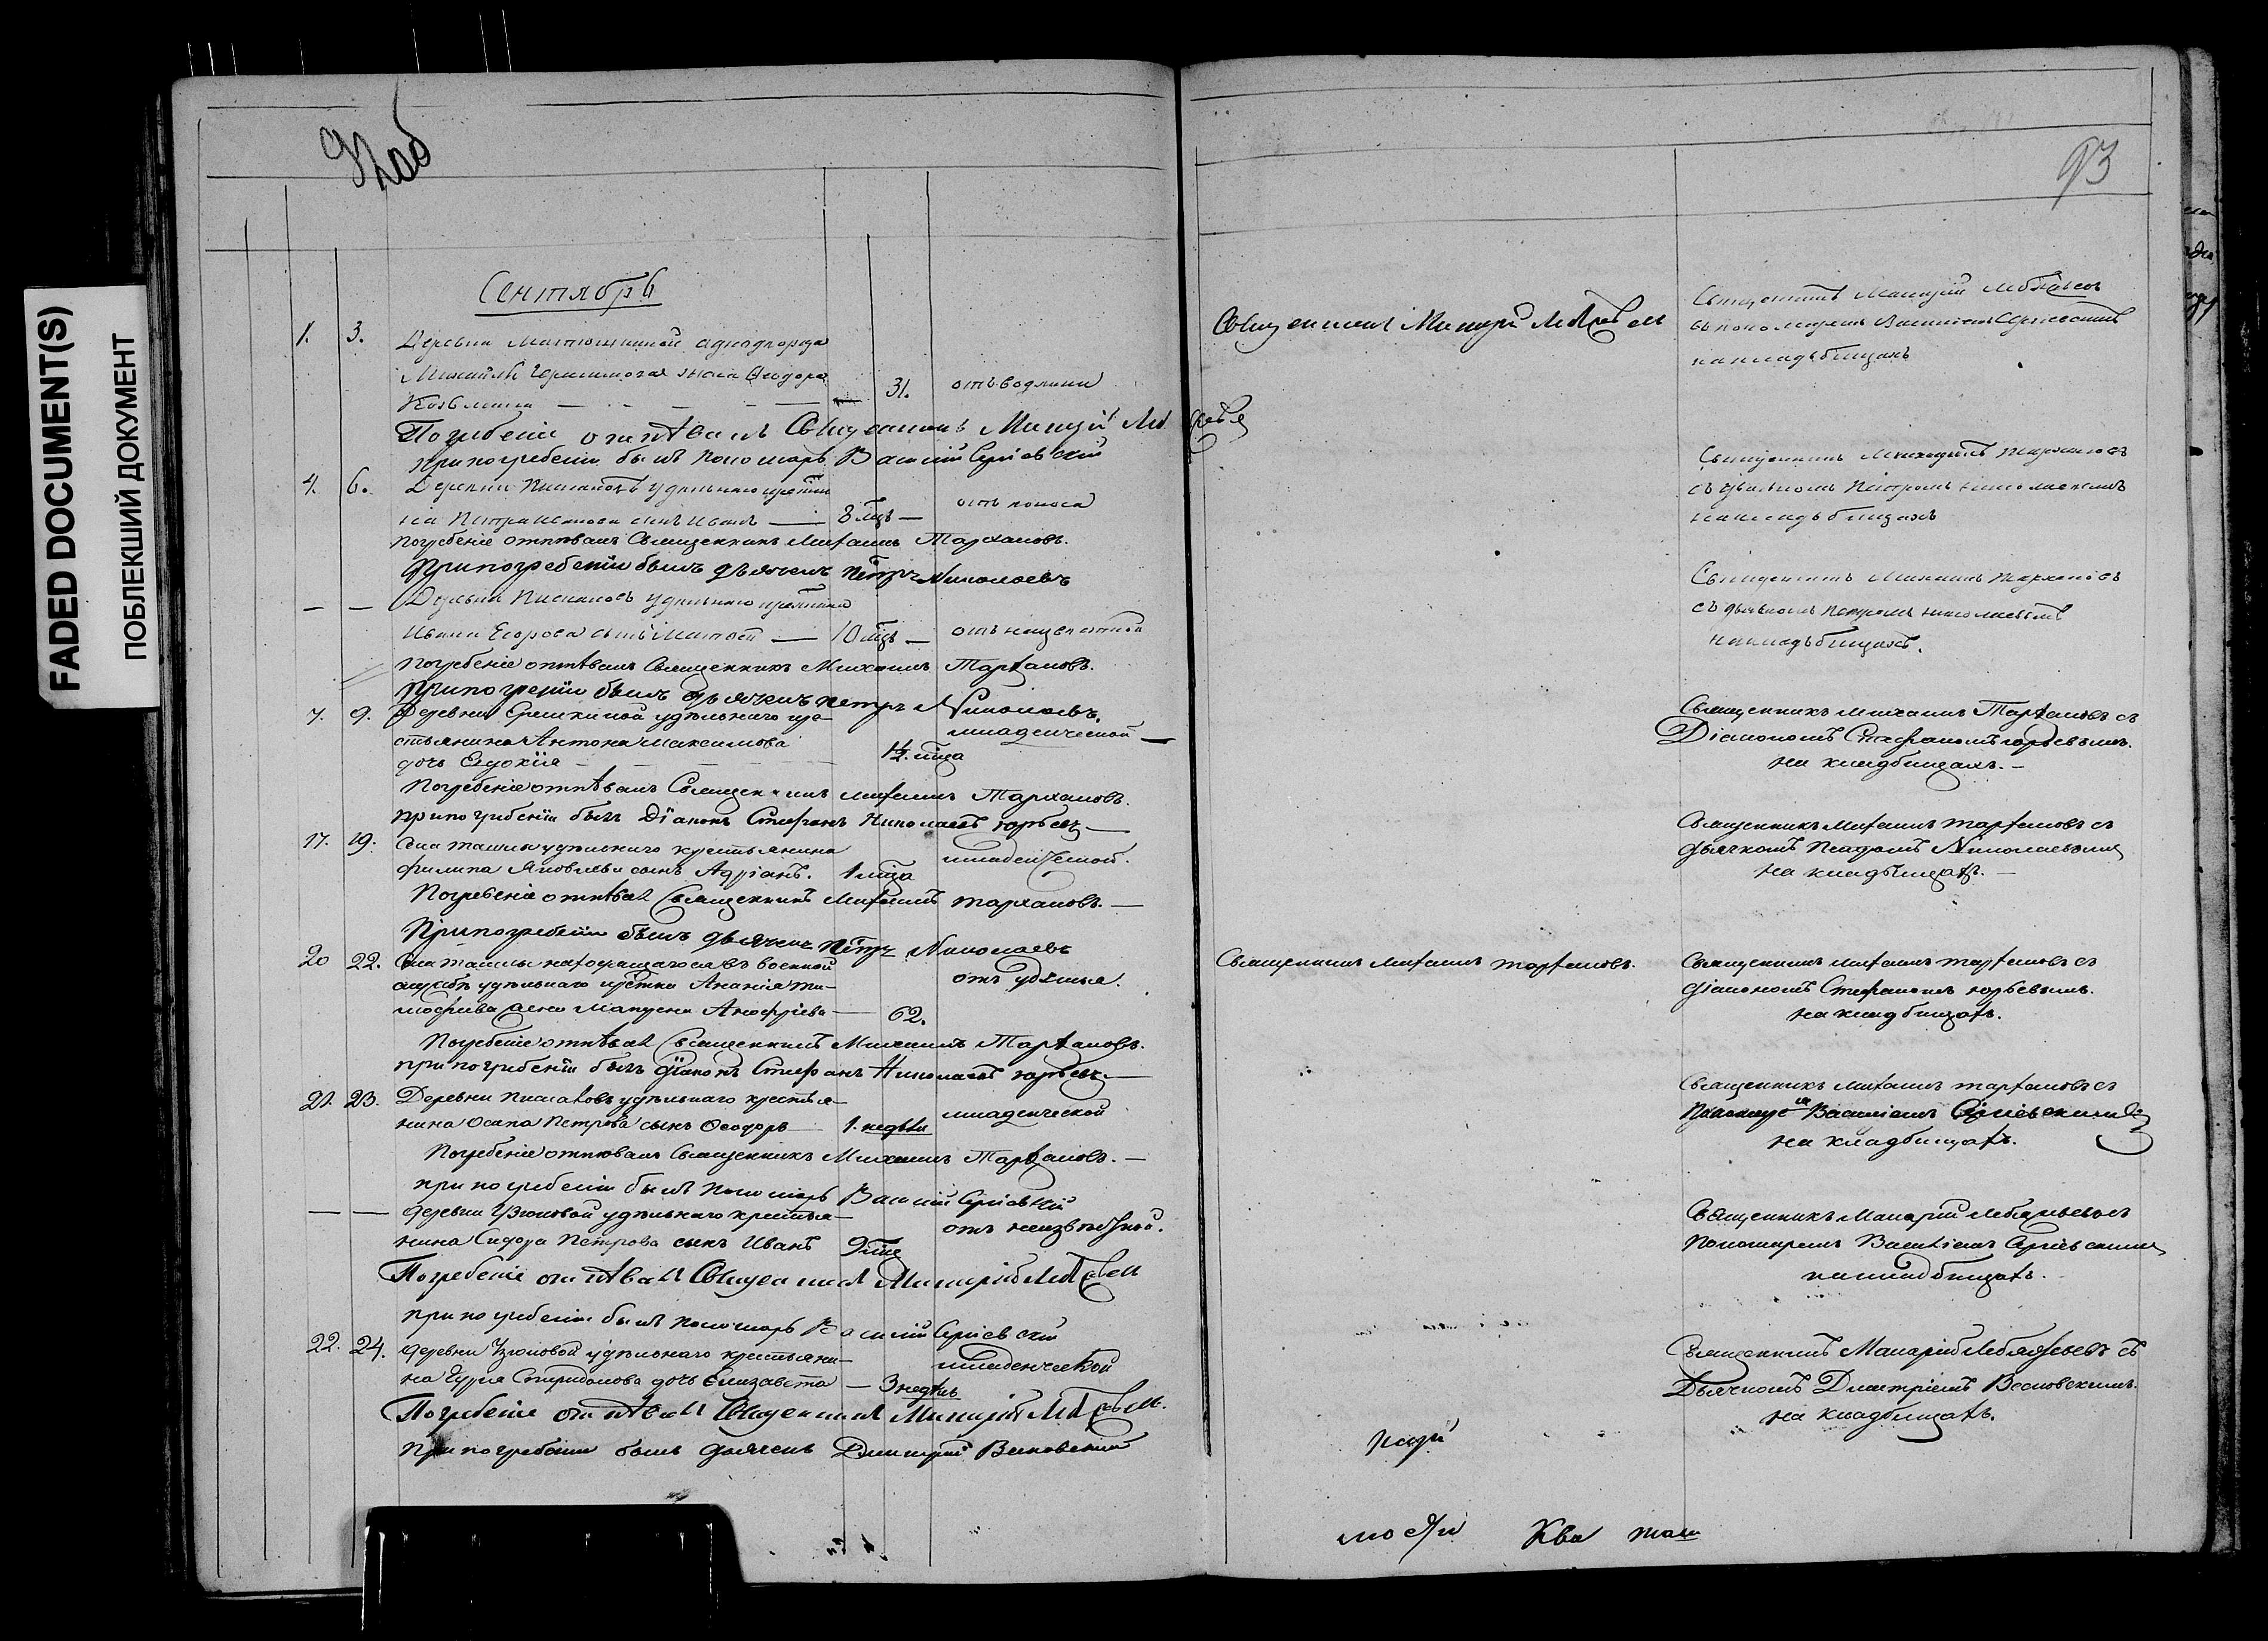 FADED DOCUMENT(S)
ПОБЛЕКШИЙ ДОКУМЕНТ
92об
93
Сентябрь
1. 3. Деревни Матюшкиной однодворца
жена Ѳеодора
Козьмина — 31. отъ водяни
Погребеніе отпѣвалъ Священникъ Макарій
При погребеніи былъ пономарь Василій Сергіевскій
4. 6. Деревни удѣльнаго крестья
на Петра Иванова сынъ Иванъ — 8 мцъ — отъ поноса
Погребеніе отпѣвалъ Священникъ Михаилъ Тархановъ.
При погребеніи былъ дьячекъ Петръ Николаевъ
— — Деревни удѣльнаго
Ивана Егорова сынъ — 10 мцъ — отъ неизвѣстной
Погребеніе отпѣвалъ Священникъ Михаилъ Тархановъ.
При погребніи былъ дьячекъ Петръ Николаевъ.
7. 9. Деревни Ерешкиной удѣльнаго кре-
стьянина Антона Максимова
дочь Евдокія — 1½ мца младенческой —
Погребеніе отпѣвалъ Священникъ Михаилъ Тархановъ.
При погребеніи былъ Діаконъ Стефанъ Николаевъ Юрьевъ —
17. 19. Села Ташлы удѣльнаго крестьянина
Филипа Яковлева сынъ Адріанъ. 1 мца младенческой.
Погребеніе отпѣвал Священникъ Михаилъ Тархановъ. —
При погребеніи былъ дьячекъ Петръ Николаевъ
20 22. Села Ташлы находящагося въ военной
службѣ удѣльнаго Ананія Ти-
мофѣева жена — 62. отъ удушья.
Погребеніе отпѣвал Священникъ Михаилъ Тархановъ.
При погребеніи былъ Діаконъ Стефанъ Николаевъ Юрьевъ —
21. 23. Деревни удѣльнаго крестья-
нина Осипа Петрова сынъ Ѳеодоръ — 1. недѣли младенческой
Погребеніе отпѣвалъ Священникъ Михаилъ Тархановъ. —
При погребеніи былъ пономарь Василій Сергіевскій
— — Деревни Узюковой удѣльнаго крестья-
нина Сидора Петрова сынъ Иванъ 9 мце отъ неизвѣстной.
Погребеніе отпѣвалъ Священникъ Макарій
При погребеніи былъ пономарь Василій Сергіевскій
22. 24. Деревни Узюковой удѣльнаго крестьяни-
на Гурія Спиридонова дочь Елизавета — 3 недѣль младенческой
Погребеніе отпѣвалъ Священникъ Макарій
При погребеніи былъ дьячекъ Димитрій Весновскій
Священникъ Макарій
Священникъ Макарій
съ пономаремъ Василіемъ Сергіевскимъ
на кладбищахъ
Священникъ Михаилъ Тархановъ
съ дьячкомъ Петромъ Николаевымъ
на кладбищахъ
Священникъ Михаилъ Тархановъ
съ дьячкомъ Петромъ Николаевымъ
на кладбищахъ.
Священникъ Михаилъ Тархановъ съ
Діакономъ Стефаномъ Юрьевымъ.
на кладбищахъ. —
Священникъ Михаилъ Тархановъ съ
дьячкомъ Николаевымъ
на кладбищахъ. —
Священникъ Михаилъ Тархановъ.
Священникъ Михаилъ Тархановъ съ
діакономъ Стефаномъ Юрьевымъ.
на кладбищахъ.
Священникъ Михаилъ Тархановъ съ
Василіемъ Сергіевскимъ
на кладбищахъ.
Священникъ Макарій
Пономаремъ Василіемъ Сергіевскимъ
на кладбищахъ.
Священникъ Макарій Лебяжьевъ съ
Дьячкомъ Дмитріемъ Весновскимъ.
на кладбищахъ.